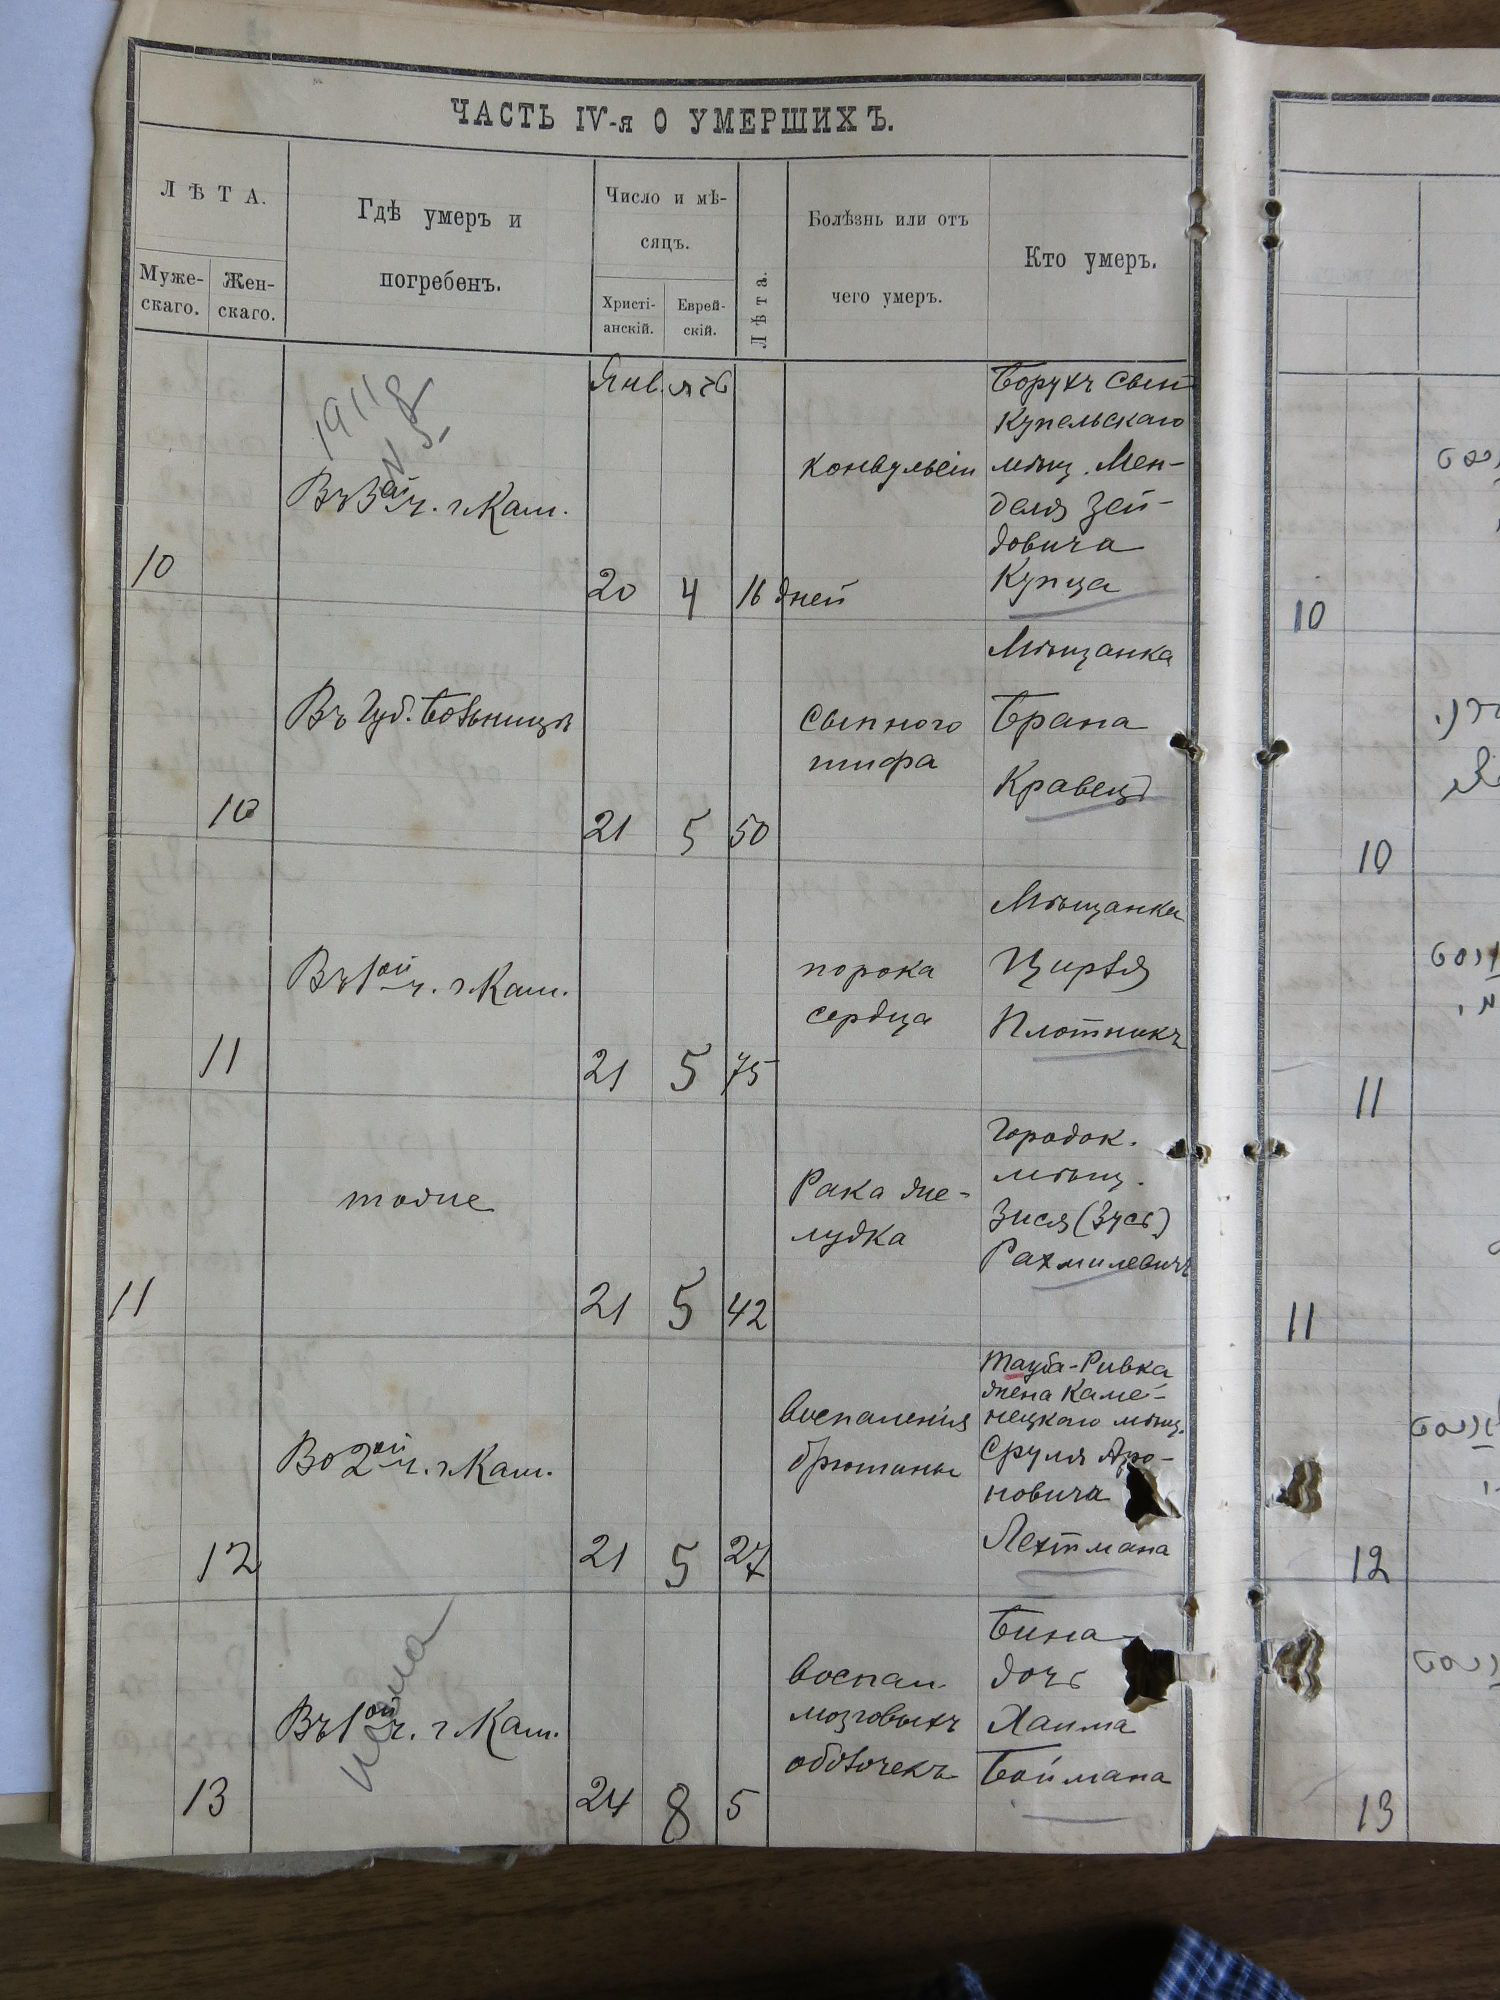 ЧАСТЬ IV-я О УМЕРШИХЪ.
ЛѢТА.
Муже-
скаго.
Жен-
скаго.
Гдѣ умеръ и
погребенъ.
Число и мѣ-
сяцъ.
Христі-
анскій.
Еврей-
скій.
Лѣта.
Болѣзнь или отъ
чего умеръ.
Кто умеръ.
Янв.
1911
10
Въ 3ей ч. г. Кам.
20
4
16 дней
конвульсіи
Борухъ сынъ
Купельскаго
мѣщ. Мен-
деля Зей-
довича
Купца
10
Въ Губ. больницѣ
21
5
50
сыпного
тифа
Мѣщанка
Брана
Кравецъ
11
Въ 1ой ч. г. Кам.
21
5
75
порока
сердца
Мѣщанка
Цирля
Плотникъ
11
тоже
21
5
42
Рака же-
лудка
Городок.
мѣщ.
Зися (Зусь)
Рахмилевичъ
12
Во 2ой ч. г. Кам.
21
5
27
воспаленія
брюшины
Тауба-Ривка
жена Каме-
нецкаго мѣщ.
Сруля Аро-
новича
Лехтмана
13
Въ 1ой ч. г. Кам.
24
8
5
воспал.
мозговыхъ
оболочекъ
Бина
дочь
Хаима
Боймана
10
10
11
11
12
13